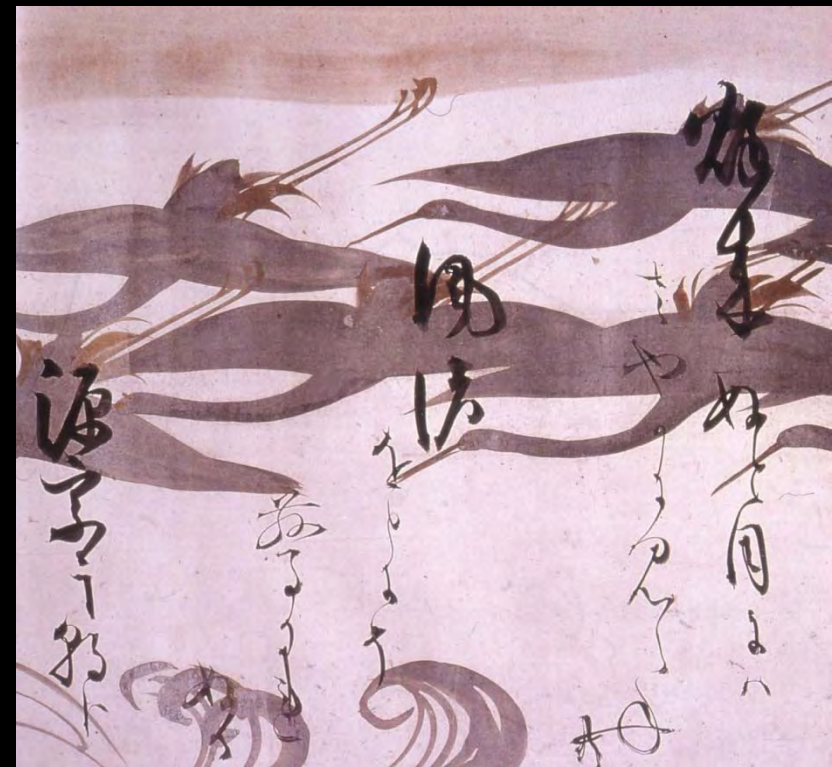 秋来ぬと目にハ
さやかに見えね
共
風
をとにそ
於とろかれ
ぬる
源宗于朝臣